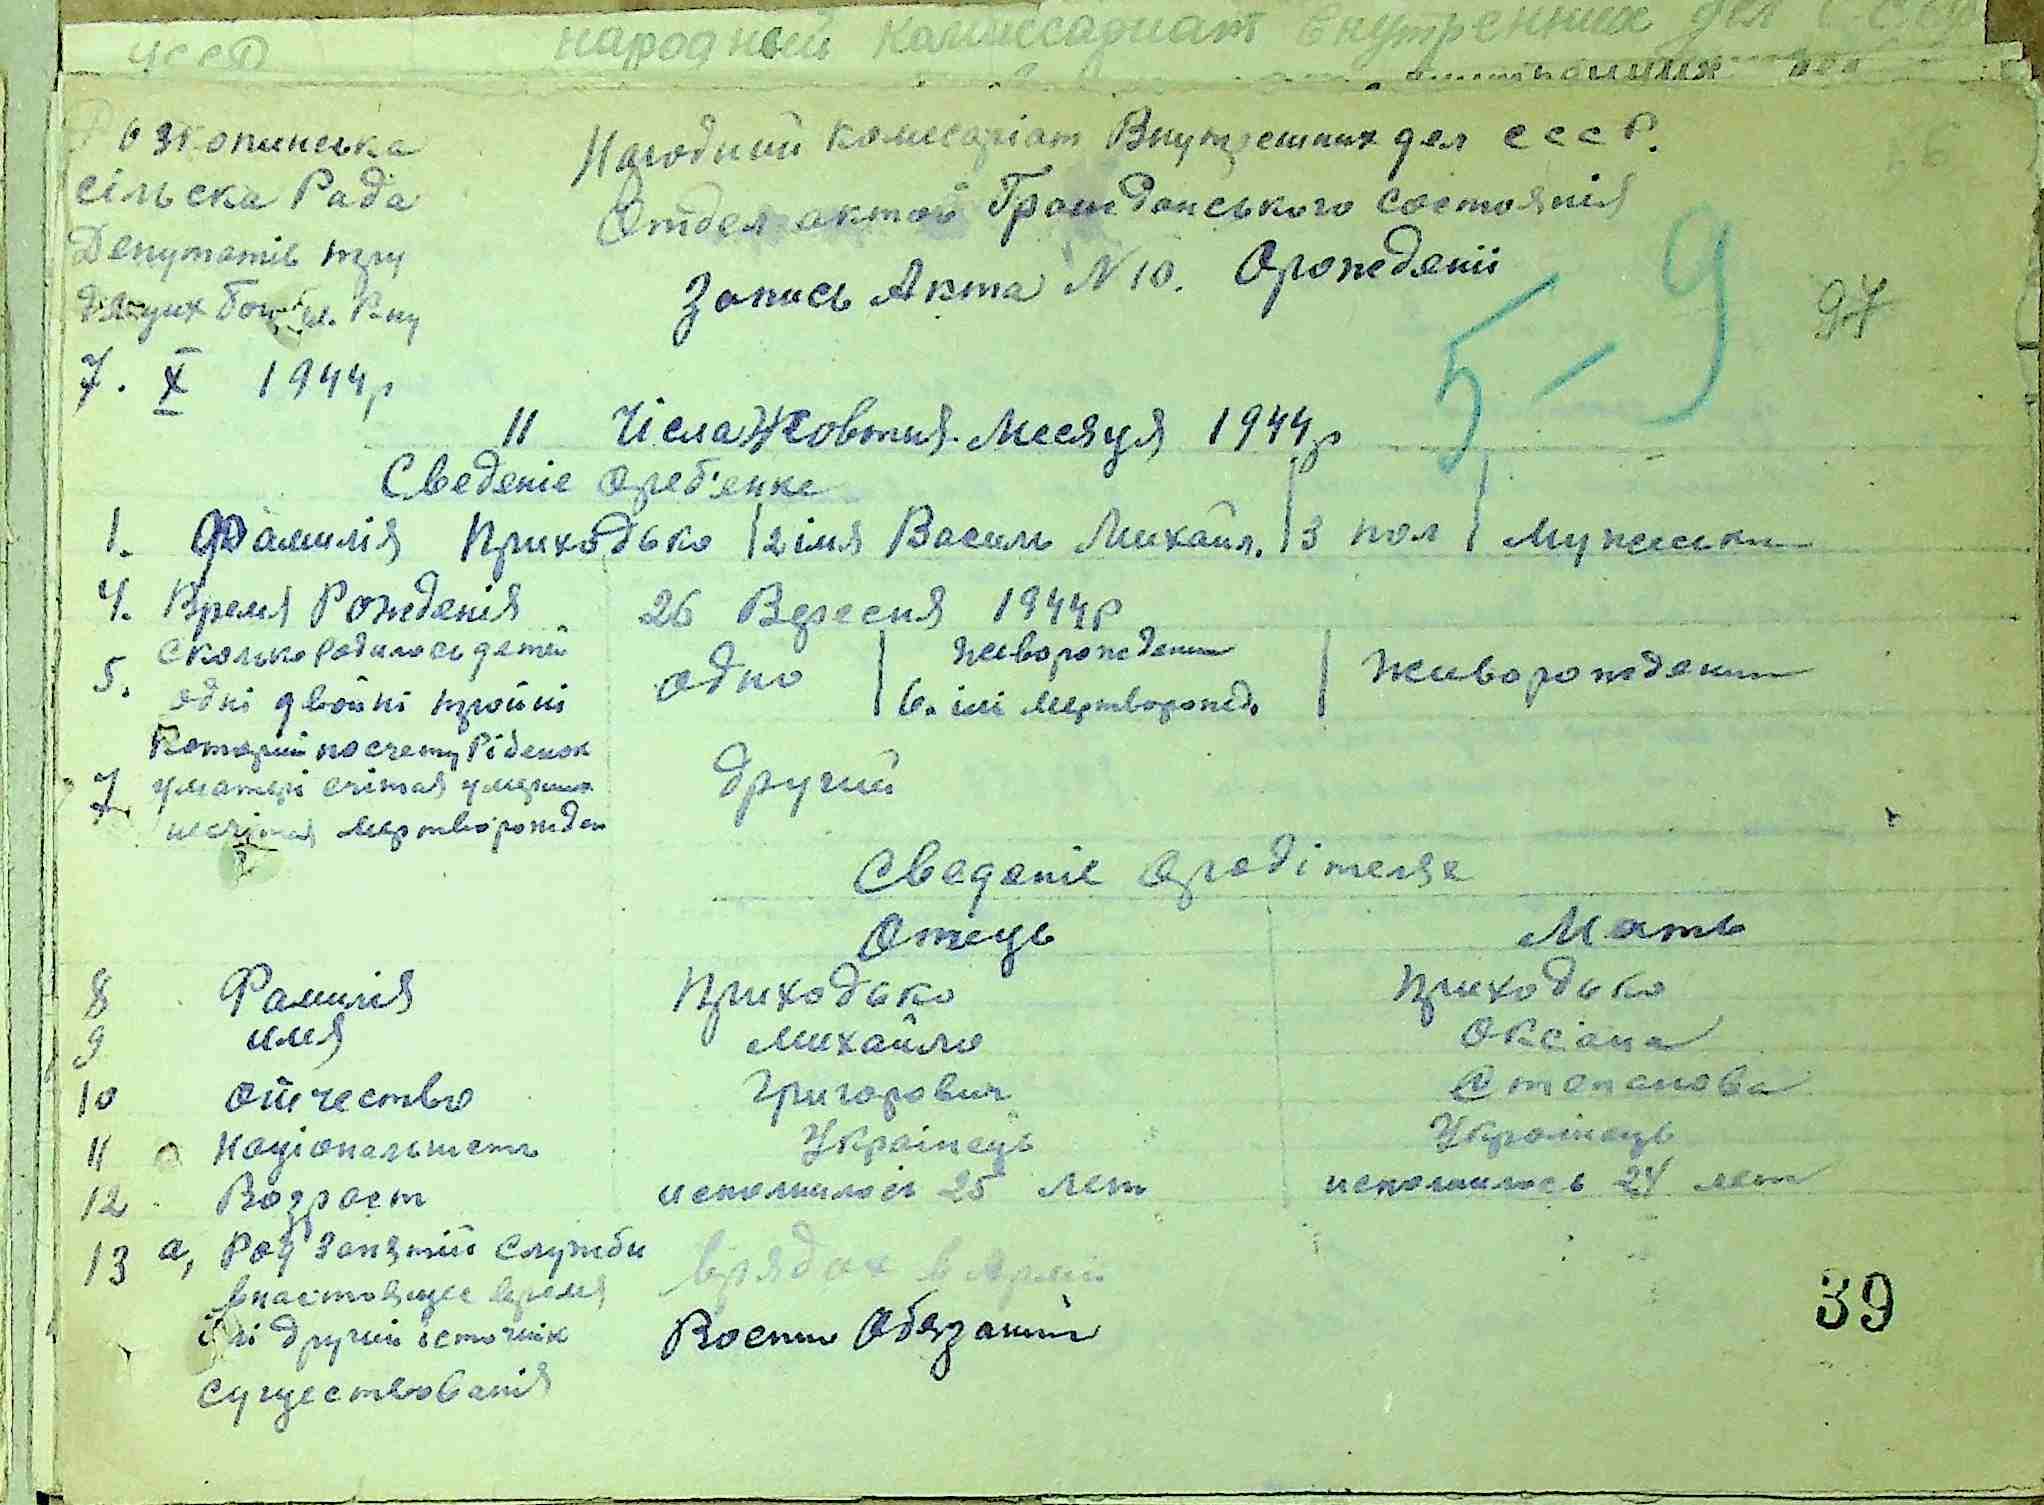 УССР народний Каммссадиат Внутренних дел СССР
Розкопинська
сільска Рада
Депутатів тру
7. X 1944р
Народний комісаріат Внутрешних дел СССР.
Отдел актов Гражданського состоянія
Запись Акта N 10. Орождении
5-9
97
11 Чісла Жовтня Месяця 1944р
Сведеніе ореб'енке
1. Фамилія Приходько 2 імя Василь Михайл. 3 пол Мужески
4. Время Рожденія 26 Вересня 1944р
5. сколько родилось детей одні двойні тройні одно
6. живорожденн ілі мертворожд. живорожденни
7. Которий посчету Рібенок
уматері счітая умерших
несчітая мертворожден
другий
Сведеніе ородітелях
Отець Мать
8 Фамилія Приходько Приходько
9 имя Михайло Оксана
10 отчество Григорович Степанова
11 Націопальнеть Украінець Украінець
12 Возраст исполнилось 25 лет исполнилось 24 лет
13 а, Род занятій Служби врядах в Армии
внастоящее время
ілі другий істочнік Воєнно Обязаний
существованія
39